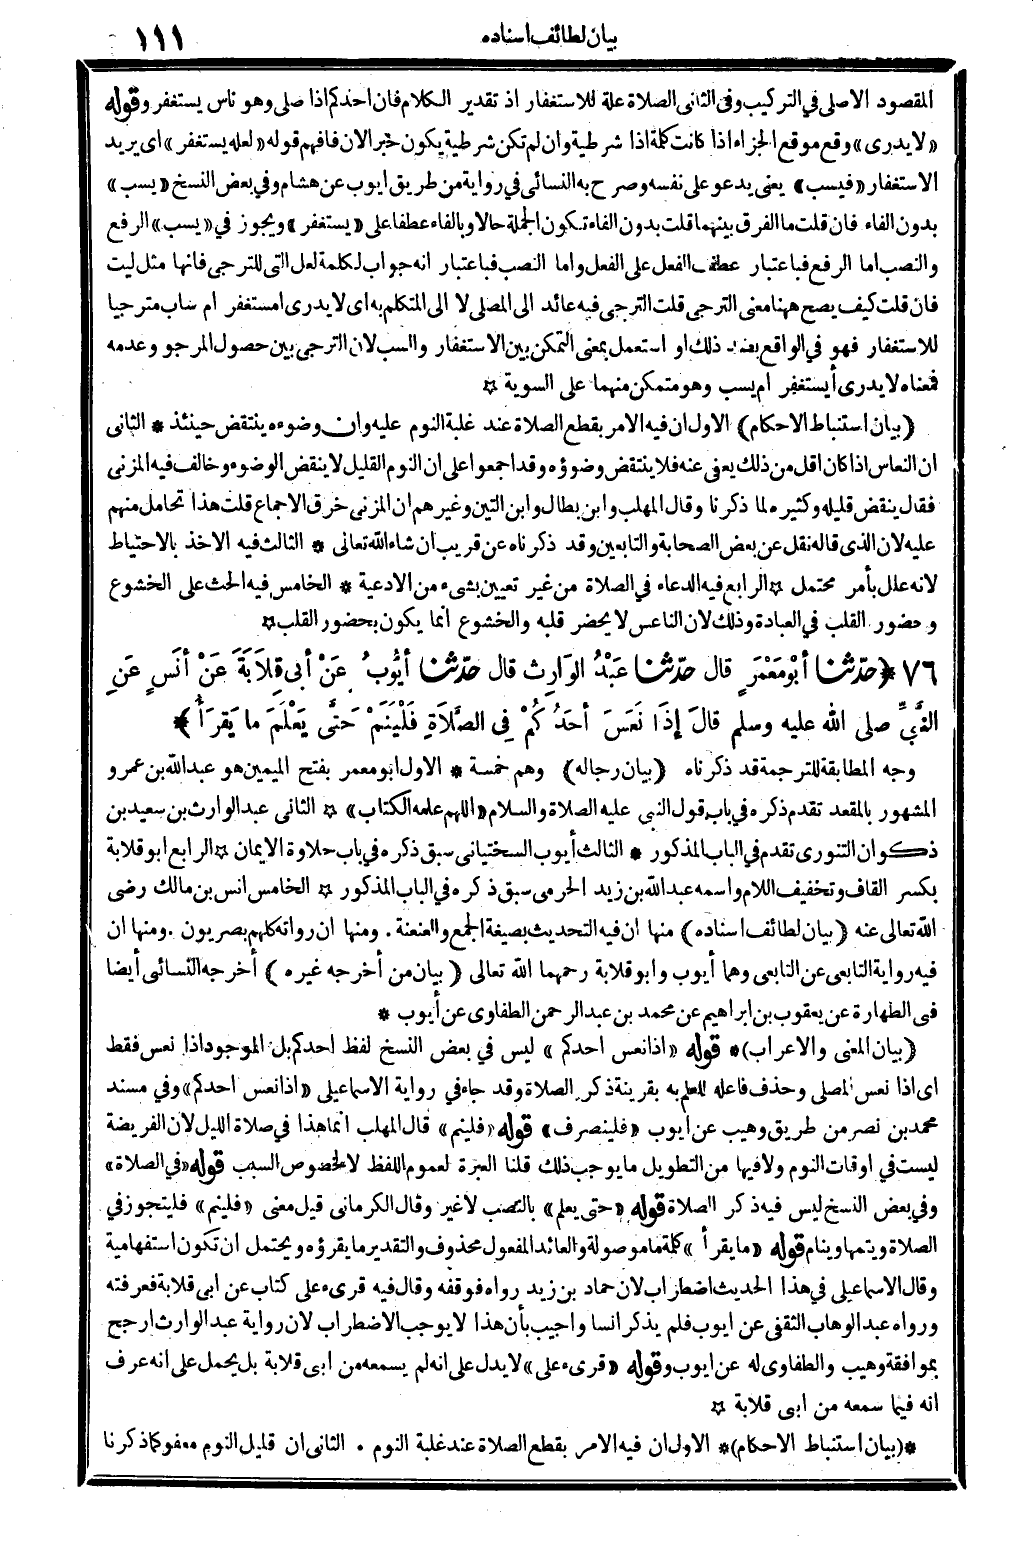 بيان لطائف اسناده ١١١
المقصود الاصلى في التركيب وفي الثانى الصلاة علة للاستغفار اذ تقدير الكلام فان احدكم اذا صلى وهو ناس يستغفر وقوله
«لا يدرى» وقع موقع الجزاء اذا كانت كلمة اذا شرطية وان لم تكن شرطية يكون خبر الان فافهم قوله «لعله يستغفر» اى يريد
الاستغفار «فيسب» يعنى يدعو على نفسه وصرح به النسائى في رواية من طريق ايوب عن هشام وفي بعض النسخ «يسب»
بدون الفاء فان قلت ما الفرق بينهما قلت بدون الفاء تكون الجملة حالا وبالفاء عطفا على «يستغفر» ويجوز في «يسب» الرفع
والنصب اما الرفع فباعتبار عطف الفعل على الفعل واما النصب فباعتبار انه جواب لكلمة لعل التى للترجى فانها مثل ليت
فان قلت كيف يصح ههنا معنى الترجى قلت الترجى فيه عائد الى المصلى لا الى المتكلم به اى لا يدرى امستغفر ام ساب مترجيا
للاستغفار فهو في الواقع بضد ذلك او استعمل بمعنى التمكن بين الاستغفار والسب لان الترجى بين حصول المرجو وعدمه
فمعناه لا يدرى أيستغفر ام يسب وهو متمكن منهما على السوية ✡
(بيان استنباط الاحكام) الاول ان فيه الامر بقطع الصلاة عند غلبة النوم عليه وان وضوءه ينتقض حينئذ * الثانى
ان النعاس اذا كان اقل من ذلك يعفى عنه فلا ينتقض وضوؤه وقد اجمعوا على ان النوم القليل لا ينقض الوضوء وخالف فيه المزنى
فقال ينقض قليله وكثيره لما ذكرنا وقال المهلب وابن بطال وابن التين وغيرهم ان المزنى خرق الاجماع قلت هذا تحامل منهم
عليه لان الذى قاله نقل عن بعض الصحابة والتابعين وقد ذكرناه عن قريب ان شاء الله تعالى * الثالث فيه الاخذ بالاحتياط
لانه علل بأمر محتمل ✡ الرابع فيه الدعاء في الصلاة من غير تعيين بشىء من الادعية * الخامس فيه الحث على الخشوع
وحضور القلب في العبادة وذلك لان الناعس لا يحضر قلبه والخشوع انما يكون بحضور القلب ✡
٧٦ ﴿حَدَّثَنَا أَبُو مَعْمَرٍ قال حَدَّثَنَا عَبْدُ الوَارِثِ قال حَدَّثَنَا أَيُّوبُ عَنْ أَبِي قِلَابَةَ عَنْ أَنَسٍ عَنِ
النَّبِيِّ صلى الله عليه وسلم قالَ إِذَا نَعَسَ أَحَدُكُمْ فِى الصَّلَاةِ فَلْيَنَمْ حَتَّى يَعْلَمَ ما يَقرَأُ﴾
وجه المطابقة للترجمة قد ذكرناه (بيان رجاله) وهم خمسة * الاول ابو معمر بفتح الميمين هو عبد الله بن عمرو
المشهور بالمقعد تقدم ذكره في باب قول النبى عليه الصلاة والسلام «اللهم علمه الكتاب» ✡ الثانى عبد الوارث بن سعيد بن
ذكوان التنورى تقدم في الباب المذكور * الثالث أيوب السختيانى سبق ذكره في باب حلاوة الايمان ✡ الرابع ابو قلابة
بكسر القاف وتخفيف اللام واسمه عبد الله بن زيد الحرمى سبق ذكره في الباب المذكور ✡ الخامس انس بن مالك رضى
الله تعالى عنه (بيان لطائف اسناده) منها ان فيه التحديث بصيغة الجمع والعنعنة . ومنها ان رواته كلهم بصريون . ومنها ان
فيه رواية التابعى عن التابعى وهما أيوب وابو قلابة رحمهما الله تعالى (بيان من أخرجه غيره) أخرجه النسائى أيضا
فى الطهارة عن يعقوب بن ابراهيم عن محمد بن عبد الرحمن الطفاوى عن أيوب *
(بيان المعنى والاعراب) * قوله «اذا نعس احدكم» ليس في بعض النسخ لفظ احدكم بل الموجود اذا نعس فقط
اى اذا نعس المصلى وحذف فاعله للعلم به بقرينة ذكر الصلاة وقد جاء في رواية الاسماعيلى «اذا نعس احدكم» وفي مسند
محمد بن نصر من طريق وهيب عن أيوب «فلينصرف» قوله «فلينم» قال المهلب انما هذا في صلاة الليل لان الفريضة
ليست في اوقات النوم ولا فيها من التطويل ما يوجب ذلك قلنا العبرة لعموم اللفظ لا لخصوص السبب قوله «في الصلاة»
وفي بعض النسخ ليس فيه ذكر الصلاة قوله «حتى يعلم» بالنصب لا غير وقال الكرمانى قيل معنى «فلينم» فليتجوز في
الصلاة ويتمها وينام قوله «ما يقرأ» كلمة ما موصولة والعائد المفعول محذوف والتقدير ما يقرؤه ويحتمل ان تكون استفهامية
وقال الاسماعيلى في هذا الحديث اضطراب لان حماد بن زيد رواه فوقفه وقال فيه قرىء على كتاب عن ابى قلابة فعرفته
ورواه عبد الوهاب الثقفى عن ايوب فلم يذكر انسا واجيب بأن هذا لا يوجب الاضطراب لان رواية عبد الوارث ارجح
بموافقة وهيب والطفاوى له عن ايوب وقوله «قرىء على» لا يدل على انه لم يسمعه من ابى قلابة بل يحمل على انه عرف
انه فيما سمعه من ابى قلابة ✡
*(بيان استنباط الاحكام)* الاول ان فيه الامر بقطع الصلاة عند غلبة النوم . الثانى ان قليل النوم معفو كما ذكرنا